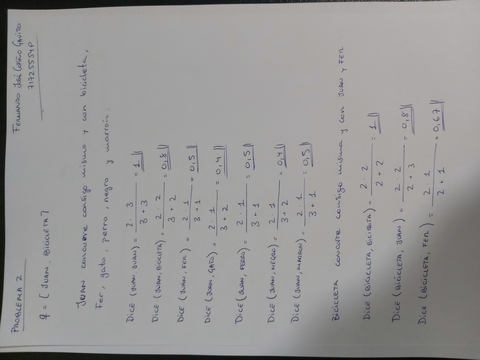 PROBLEMA 2
FERNANDO JOSÉ
71725554P
q = { JUAN, BICICLETA }
JUAN concurre contigo mismo y con bicicleta,
Fer, gato, perro, negro y marrón.
DICE (JUAN, JUAN) = 2 · 3 / 3 + 3 = 1
DICE (JUAN, BICICLETA) = 2 · 2 / 3 + 2 = 0,8
DICE (JUAN, FER) = 2 · 1 / 3 + 1 = 0,5
DICE (JUAN, GATO) = 2 · 1 / 3 + 2 = 0,4
DICE (JUAN, PERRO) = 2 · 1 / 3 + 1 = 0,5
DICE (JUAN, NEGRO) = 2 · 1 / 3 + 2 = 0,4
DICE (JUAN, MARRÓN) = 2 · 1 / 3 + 1 = 0,5
BICICLETA concurre contigo misma y con JUAN y FER
DICE (BICICLETA, BICICLETA) = 2 · 2 / 2 + 2 = 1
DICE (BICICLETA, JUAN) = 2 · 2 / 2 + 3 = 0,8
DICE (BICICLETA, FER) = 2 · 1 / 2 + 1 = 0,67